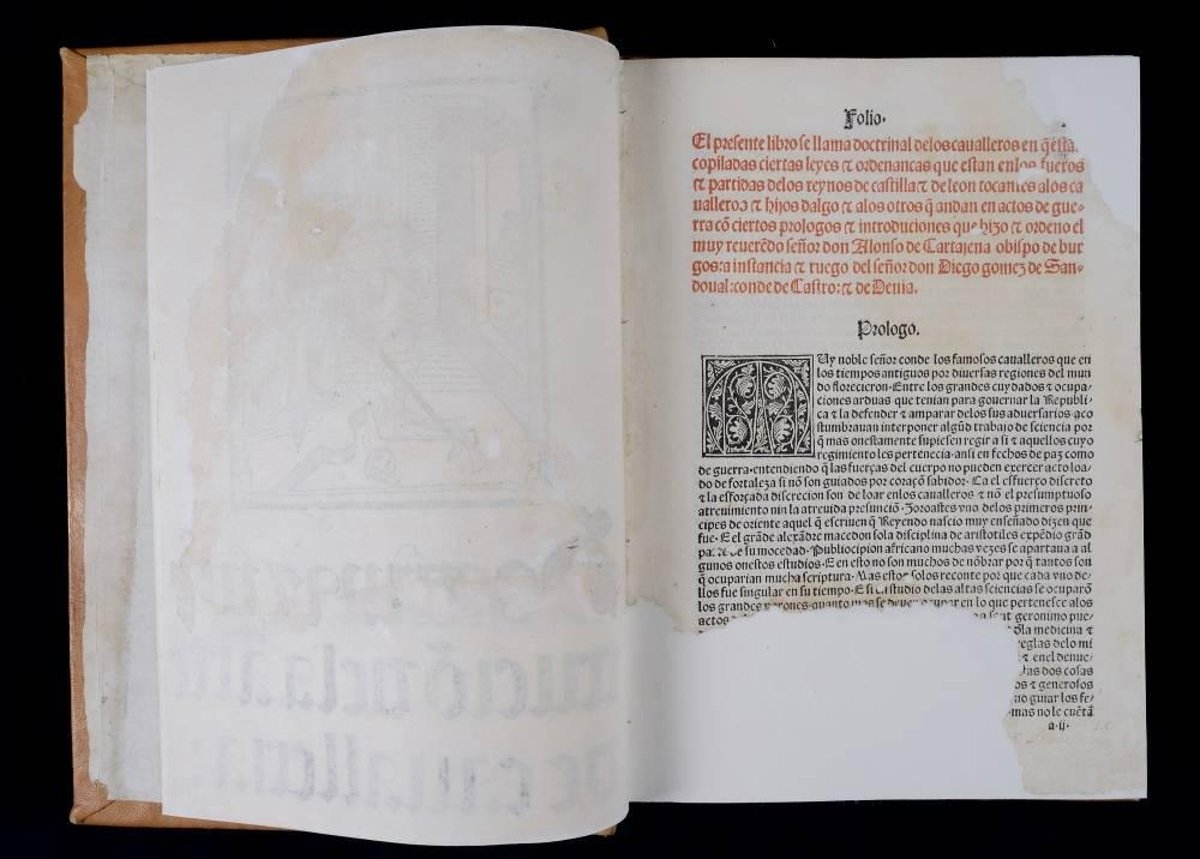 Folio.
El presente libro se llama doctrinal delos caualleros en q̄ está
copiladas ciertas leyes ⁊ ordenancas que estan enlos fueros
⁊ partidas delos reynos de castilla ⁊ de leon tocantes alos ca
ualleros ⁊ hijos dalgo ⁊ alos otros q̄ andan en actos de gue-
rra cō ciertos prologos ⁊ introduciones que hizo ⁊ ordeno el
muy reuerēdo señor don Alonso de Cartajena obispo de bur
gos: a instancia ⁊ ruego del señor don Diego gomez de San-
doual: conde de Castro: ⁊ de Denia.
Prologo.
MUy noble señor conde los famosos caualleros que en
los tiempos antiguos por diuersas regiones del mun
do florecieron. Entre los grandes cuydados ⁊ ocupa-
ciones arduas que tenian para gouernar la Republi-
ca ⁊ la defender ⁊ amparar delos sus aduersarios aco
stumbrauan interponer algūd trabajo de sciencia por
q̄ mas onestamente supiesen regir a si ⁊ aquellos cuyo
regimiento les pertenecia. ansi en fechos de paz como
de guerra. entendiendo q̄ las fuerças del cuerpo no pueden exercer acto loa-
do de fortaleza si nō son guiados por coraçon sabidor. Ca el esfuerço discreto
⁊ la esforçada discrecion son de loar enlos caualleros ⁊ nō el presumptuoso
atreuimiento nin la atreuida presunciō. Zoroastes vno delos primeros prin-
cipes de oriente aquel q̄ escriuen q̄ Reyendo nascio muy enseñado dizen que
fue. E el grāde alexādre macedon sola disciplina de aristotiles expēdio grād
parte de su mocedad. Publiocipion africano muchas vezes se apartaua a al
gunos onestos estudios. E en esto no son muchos de nōbrar por q̄ tantos son
q̄ ocuparian mucha scriptura. Mas estos solos reconte por que cada vno de-
llos fue singular en su tiempo. E si estudio delas altas sciencias se ocuparō
los grandes varones. quanto mas se deuen ocupar en lo que pertenesce alos
actos sant geronimo pue-
dla medicina ⁊
reglas delo mi
⁊ enel denue-
las dos cosas
os ⁊ generosos
no guiar los fe-
mas no le cuētā
a.ij.